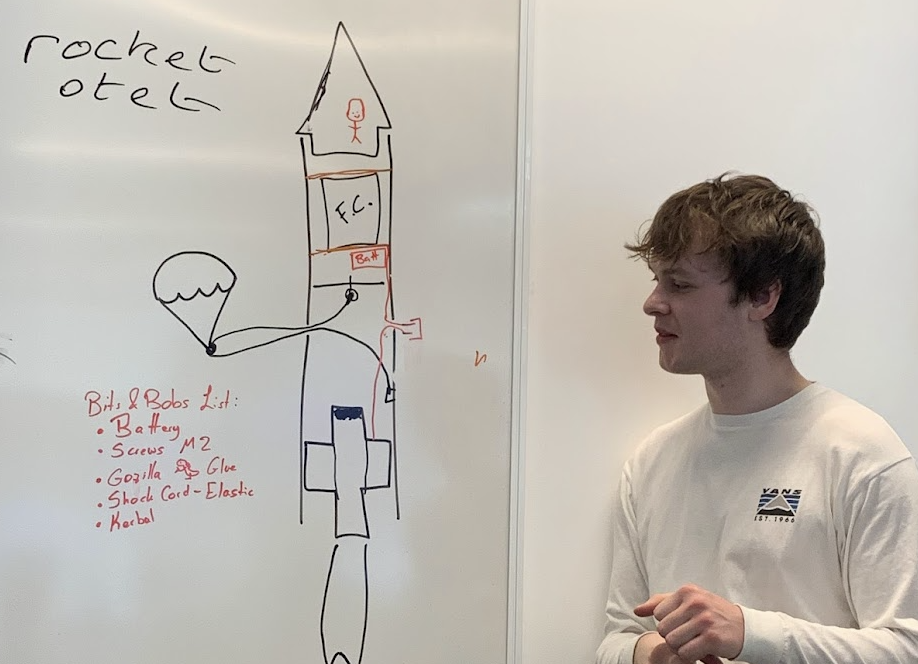 rocket
otet
F.C.
Batt
Bits & Bobs List:
• Battery
• Screws M2
• Gozilla Glue
• Shock Cord - Elastic
• Kerbal
VANS
EST. 1966